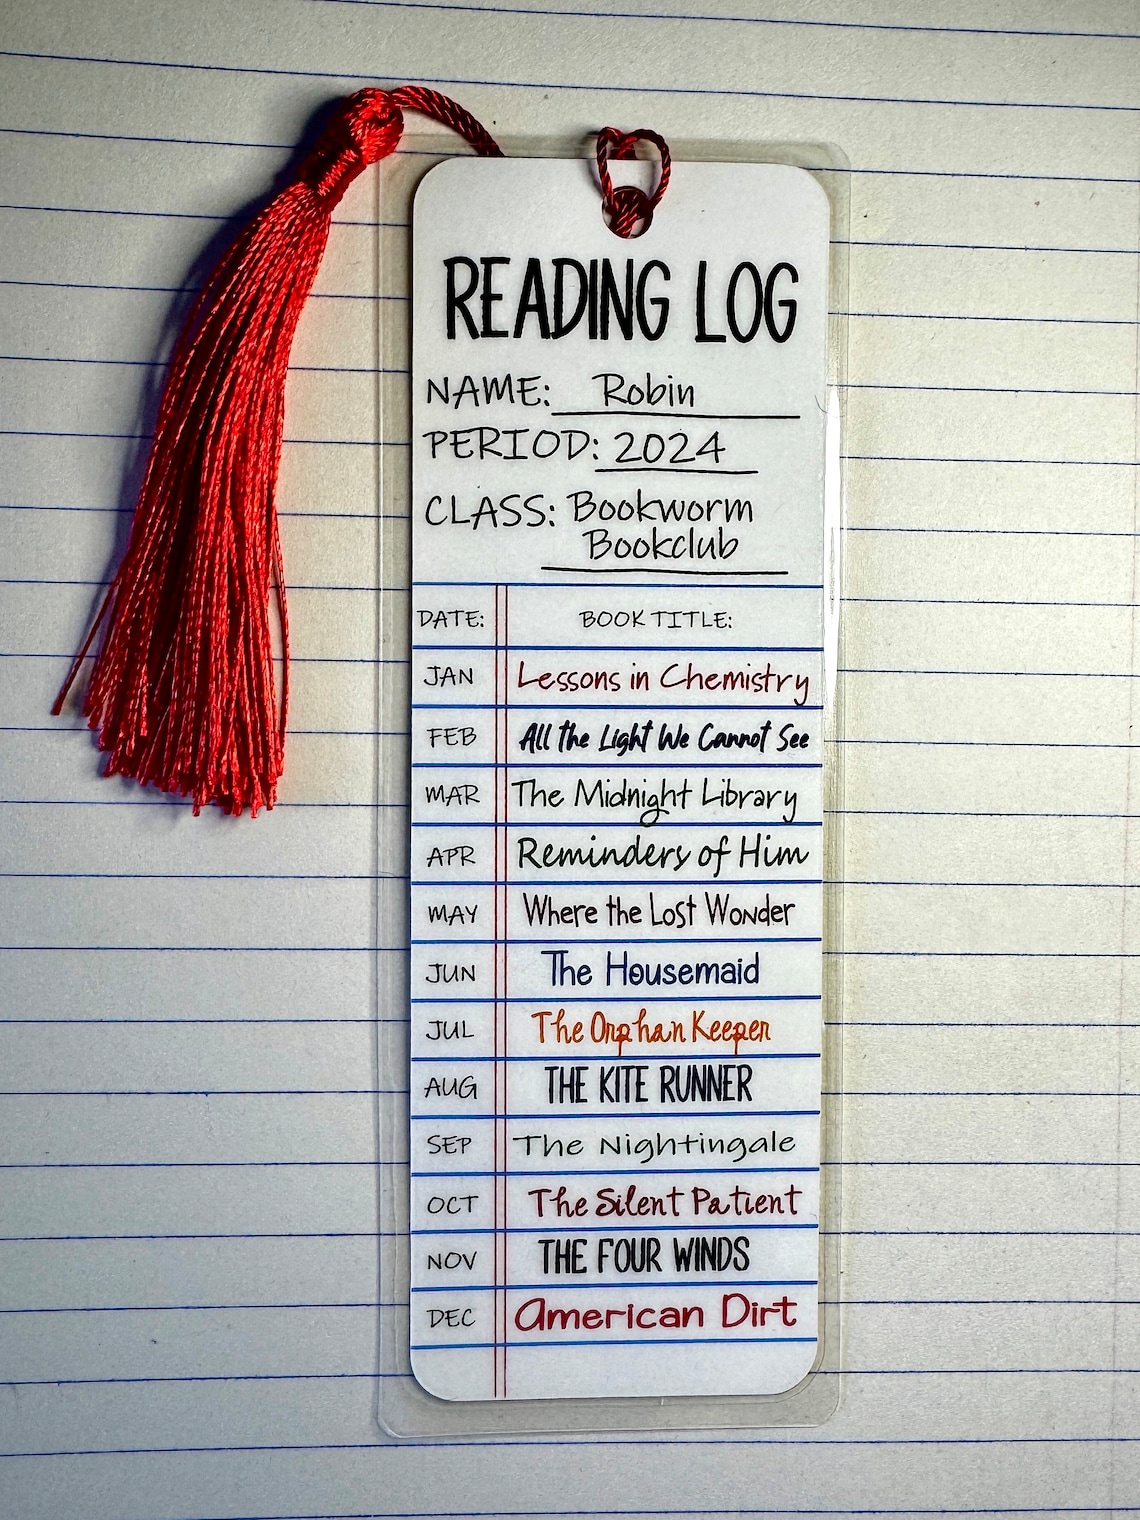 READING LOG
NAME: Robin
PERIOD: 2024
CLASS: Bookworm
Bookclub
DATE: BOOK TITLE:
JAN Lessons in Chemistry
FEB All the Light We Cannot See
MAR The Midnight Library
APR Reminders of Him
MAY Where the Lost Wonder
JUN The Housemaid
JUL The Orphan Keeper
AUG THE KITE RUNNER
SEP The Nightingale
OCT The Silent Patient
NOV THE FOUR WINDS
DEC American Dirt